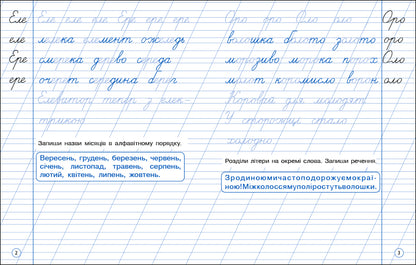 Еле Еле еле еле Ере ере ере
еле мелка елемент ожеледь
Ере смерека дерево середа
ере очерет середина берег
Елеватор тепер з елек-
трикою
Запиши назви місяців в алфавітному порядку.
Вересень, грудень, березень, червень,
січень, листопад, травень, серпень,
лютий, квітень, липень, жовтень.
2
Оро оро Оло оло Оро
волошка болото золото оро
морозиво морока порох Оло
молот коромисло ворон оло
Коровай для молодят
У сторожці стало
холодно
Розділи літери на окремі слова. Запиши речення.
Зродиноюмичастоподорожуємокраї-
ною!Міжколоссямуполіростутьволошки.
3